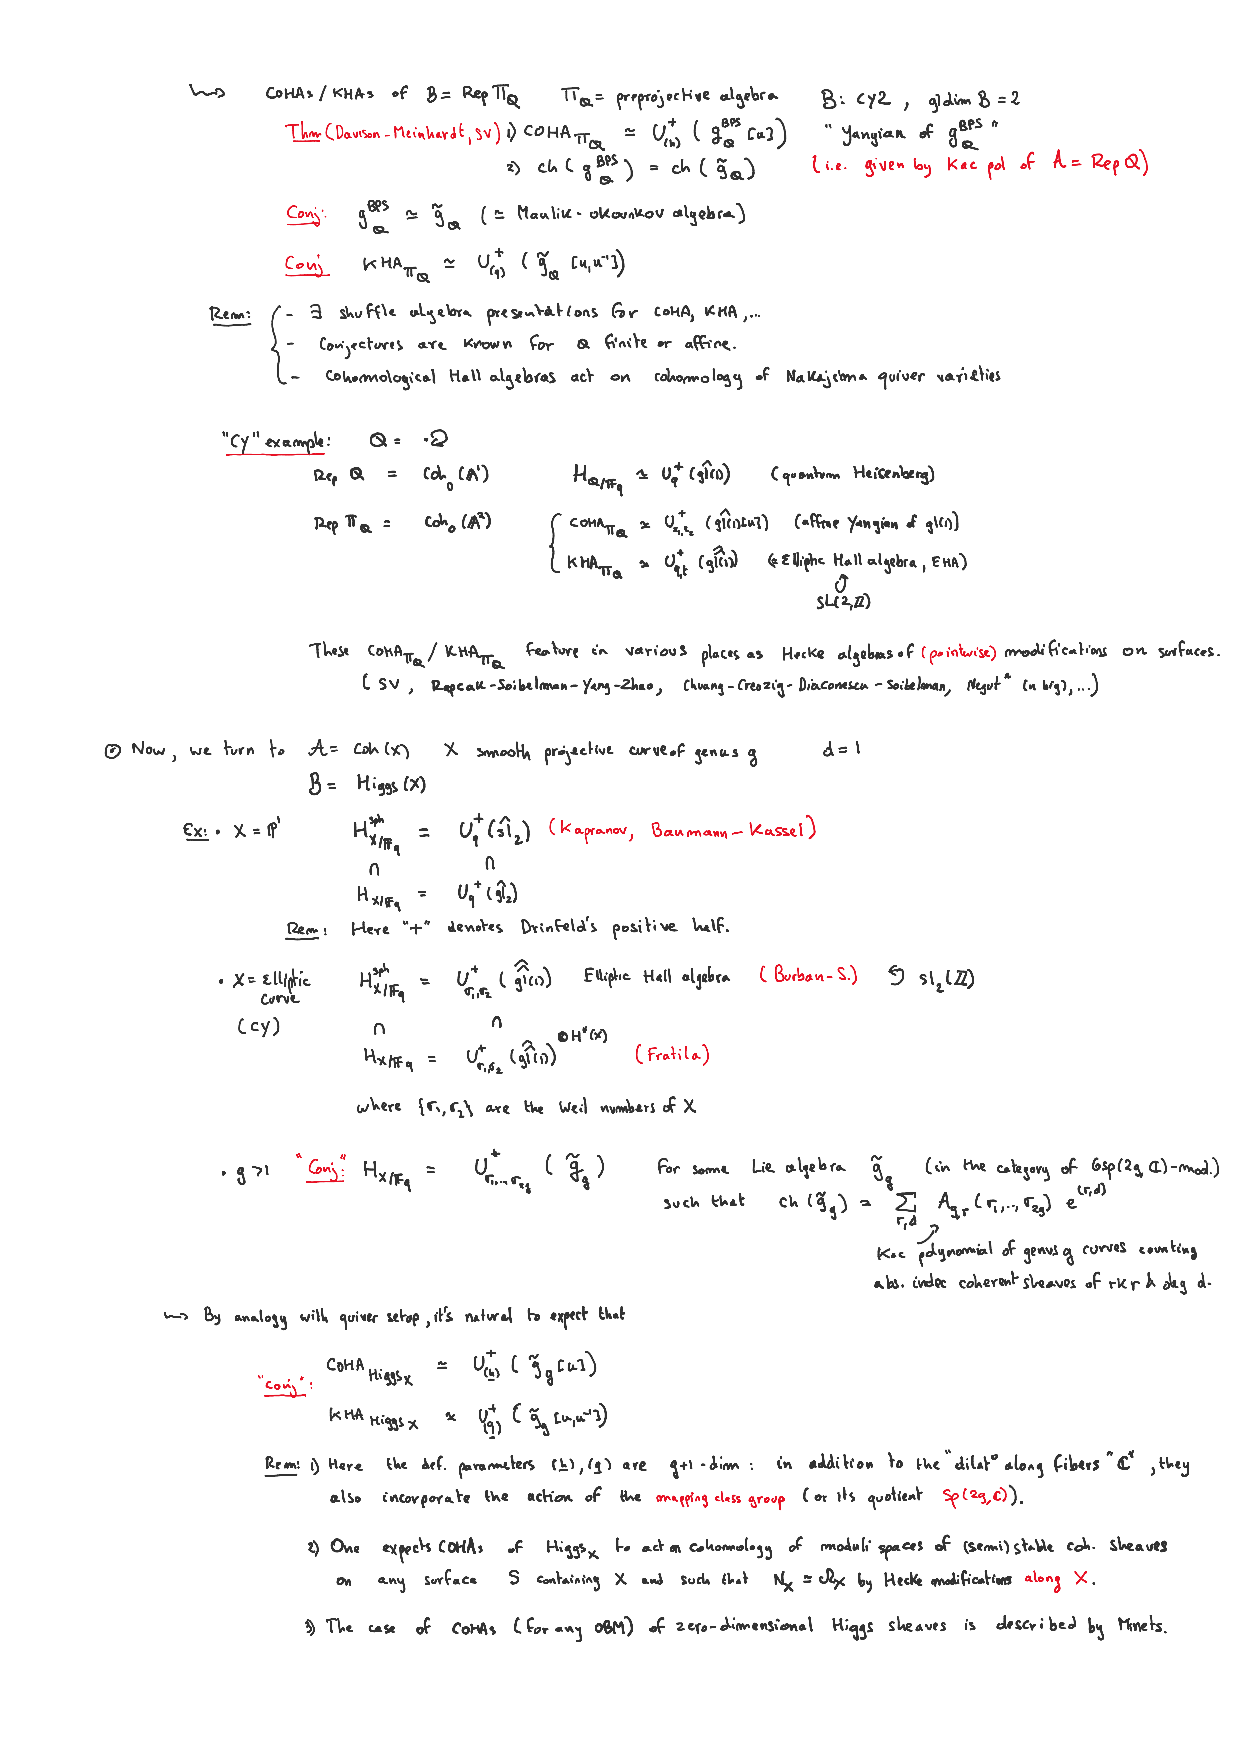 ↝ COHAs / KHAs of B = Rep Π_Q Π_Q = preprojective algebra B: CY2, gldim B = 2
Thm (Davison-Meinhardt, SV) 1) COHA_{Π_Q} ≃ U^+_{(h)} (g_Q^{BPS} [u]) "Yangian of g_Q^{BPS}"
2) ch (g_Q^{BPS}) = ch (g̃_Q) (i.e. given by Kac pol of A = Rep Q)
Conj: g_Q^{BPS} ≃ g̃_Q (≃ Maulik-Okounkov algebra)
Conj KHA_{Π_Q} ≃ U^+_{(q)} (g̃_Q [u,u^{-1}])
Rem: - ∃ shuffle algebra presentations for COHA, KHA,...
- Conjectures are known for Q finite or affine.
- Cohomological Hall algebras act on cohomology of Nakajima quiver varieties
"CY" example: Q =
Rep Q = Coh_0 (A^1) H_{Q/F_q} ≃ U_q^+ (ĝl(1)) (quantum Heisenberg)
Rep Π_Q = Coh_0 (A^2) COHA_{Π_Q} ≃ U^+ (ĝl(1)[u]) (affine Yangian of gl(1))
KHA_{Π_Q} ≃ U^+_{q,t} (gl(1)^^) (= Elliptic Hall algebra, EHA)
SL(2,Z)
These COHA_{Π_Q} / KHA_{Π_Q} feature in various places as Hecke algebras of (pointwise) modifications on surfaces.
(SV, Rapcak-Soibelman-Yang-Zhao, Chuang-Creozig-Diaconescu-Soibelman, Negut (n big),...)
⊙ Now, we turn to A = Coh(X) X smooth projective curve of genus g d = 1
B = Higgs(X)
Ex: • X = P^1 H^{sph}_{X/F_q} = U_q^+ (ŝl_2) (Kapranov, Baumann-Kassel)
∩ ∩
H_{X/F_q} = U_q^+ (ĝl_2)
Rem: Here "+" denotes Drinfeld's positive half.
• X = Elliptic curve H^{sph}_{X/F_q} = U^+_{σ_1,σ_2} (gl(1)^^) Elliptic Hall algebra (Burban-S.) ↺ SL_2(Z)
(CY) ∩ ∩
H_{X/F_q} = U^+_{σ_1,σ_2} (gl(1)^^)^{⊗H^0(X)} (Fratila)
where {σ_1, σ_2} are the Weil numbers of X
• g>1 "Conj:" H_{X/F_q} = U^+_{σ_1,...,σ_{2g}} (g̃_g) for some Lie algebra g̃_g (in the category of GSp(2g,C)-mod.)
such that ch(g̃_g) = Σ_{r,d} A_{g,r} (σ_1,..,σ_{2g}) e^{(r,d)}
Kac polynomial of genus g curves counting
abs. indec coherent sheaves of rk r & deg d.
↝ By analogy with quiver setup, it's natural to expect that
COHA_{Higgs_X} ≃ U^+_{(h)} (g̃_g [u])
"Conj":
KHA_{Higgs_X} ≃ U^+_{(q)} (g̃_g [u,u^{-1}])
Rem: 1) Here the def. parameters (h), (q) are g+1-dim: in addition to the "dilat° along fibers" C^*, they
also incorporate the action of the mapping class group (or its quotient Sp(2g,C)).
2) One expects COHAs of Higgs_X to act on cohomology of moduli spaces of (semi)stable coh. sheaves
on any surface S containing X and such that N_X ≃ Ω_X by Hecke modifications along X.
3) The case of COHAs (for any OBM) of zero-dimensional Higgs sheaves is described by Minets.